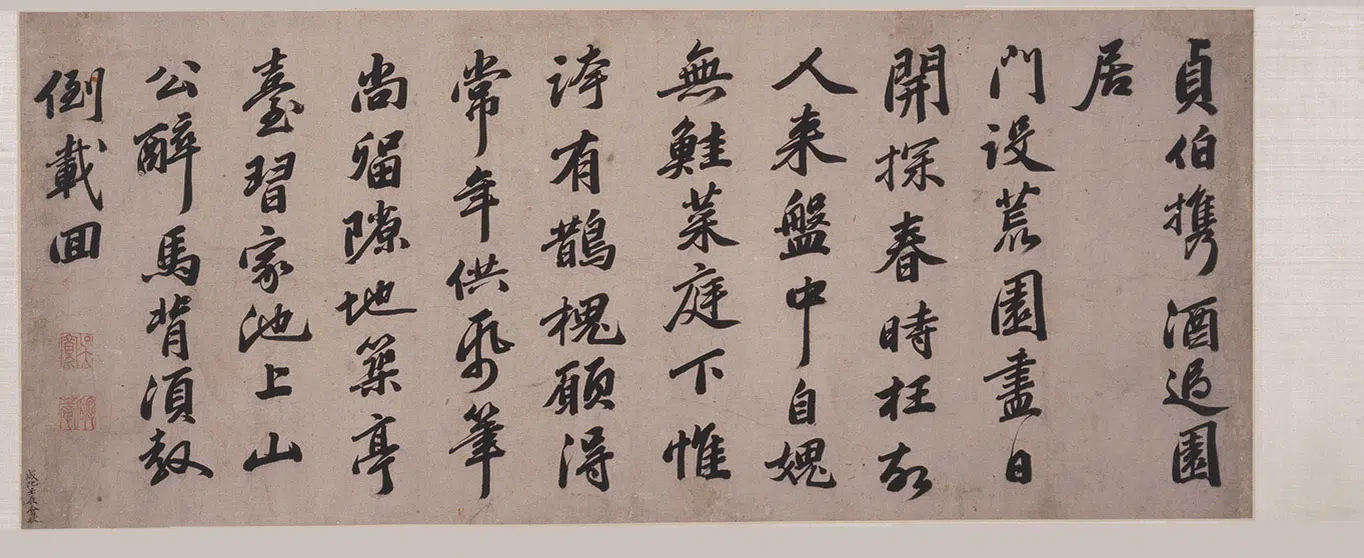 貞伯携酒過園
居
門設荒園盡日
開探春時枉故
人来盤中自媿
無鮭菜庭下惟
誇有鵲槐願得
常年供飛筆
尚留隙地築亭
臺習家池上山
公醉馬背須教
倒載回